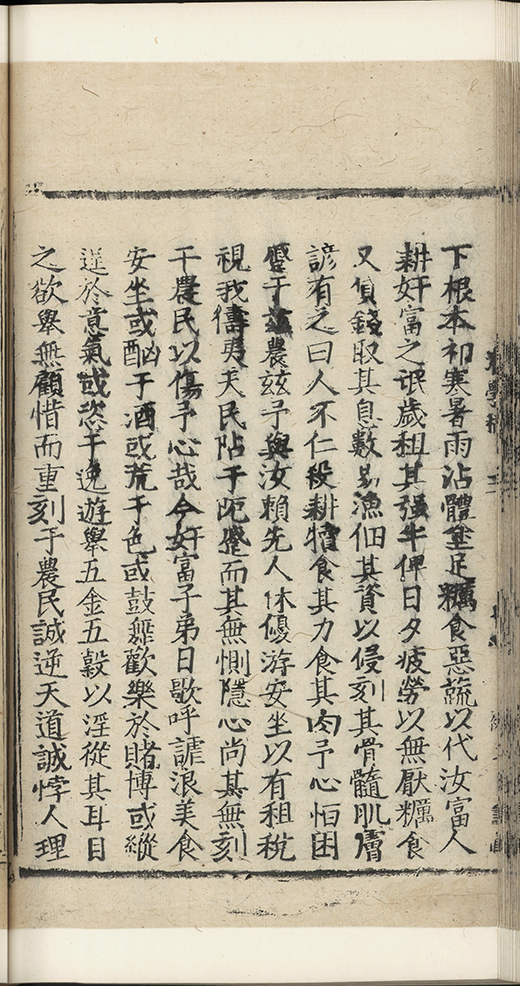 下根本初寒暑雨沾體塗足糲食惡蔬以代汝富人
耕奸富之氓歲租其强牛俾日夕疲勞以無厭糲食
又負錢取其息數易漁佃其資以侵刻其骨髓肌膚
諺有之曰人不仁役耕犢食其力食其肉予心怕困
蹙于茲農茲予與汝賴先人休優游安坐以有租稅
視我儔夷天民阽于阨蹙而其無惻隱心尚其無刻
于農民以傷予心哉今奸富子弟日歌呼謔浪美食
安坐或酗于酒或荒于色或鼓舞歡樂於賭博或縱
逞於意氣或恣于逸遊舉五金五穀以淫從其耳目
之欲舉無顧惜而重刻于農民誠逆天道誠悖人理